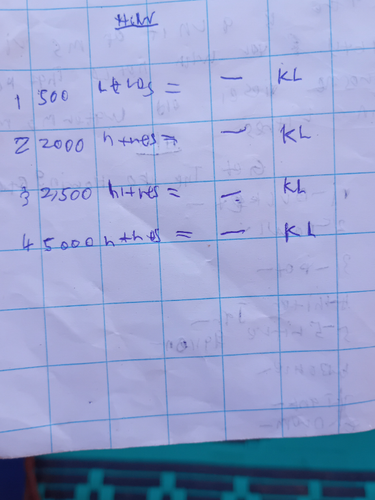 H/W
1 500 litres = — KL
2 2000 litres = — KL
3 2,500 litres = — KL
4 5000 litres = — KL